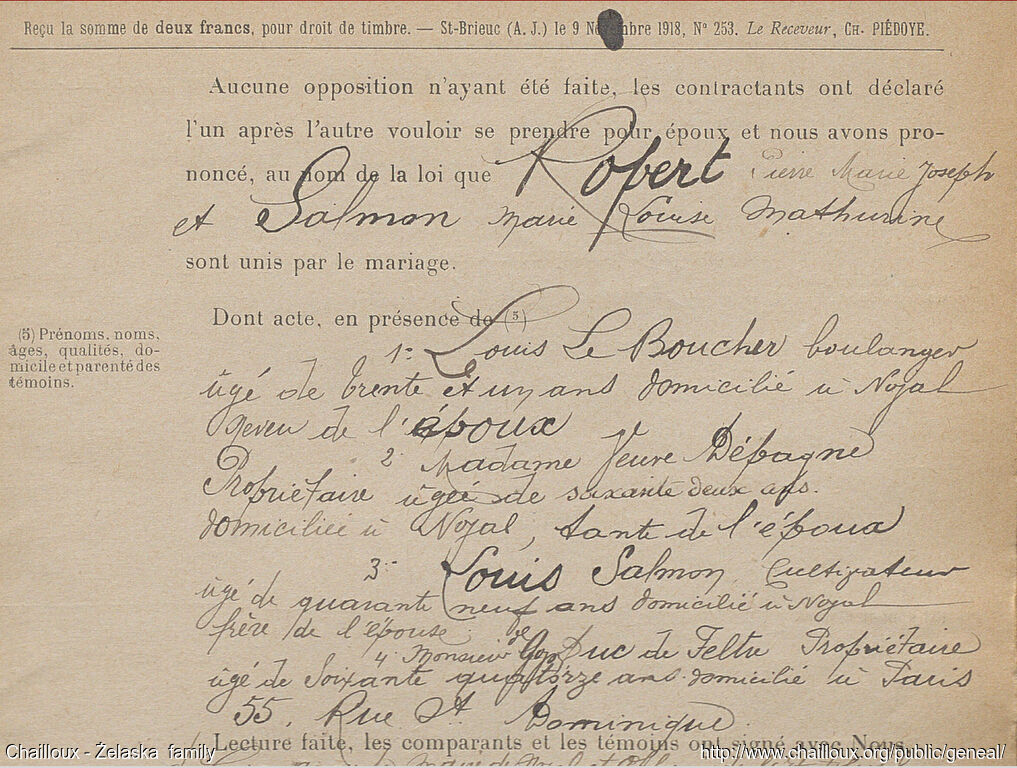 Reçu la somme de deux francs, pour droit de timbre. — St-Brieuc (A. J.) le 9 Novembre 1918, N° 253. Le Receveur, CH. PIÉDOYE.
Aucune opposition n'ayant été faite, les contractants ont déclaré
l'un après l'autre vouloir se prendre pour époux et nous avons pro-
noncé, au nom de la loi que Robert Pierre Marie Joseph
et Salmon Marie Louise Mathurine
sont unis par le mariage.
Dont acte, en présence de (5)
(5) Prénoms, noms,
âges, qualités, do-
micile et parenté des
témoins.
1° Louis Le Boucher boulanger
âgé de trente et un ans domicilié à Noyal
Neveu de l'époux
2 Madame Veuve Défagne
Propriétaire âgée de soixante deux ans.
domiciliée à Noyal, tante de l'époux
3° Louis Salmon, Cultivateur
âgé de quarante neuf ans domicilié à Noyal
frère de l'épouse
4 Monsieur Duc de Feltre Propriétaire
âgé de Soixante quatorze ans domicilié à Paris
55, Rue St Dominique.
Lecture faite, les comparants et les témoins ont signé avec Nous
Chailloux - Żelaska family
http://www.chailloux.org/public/geneal/